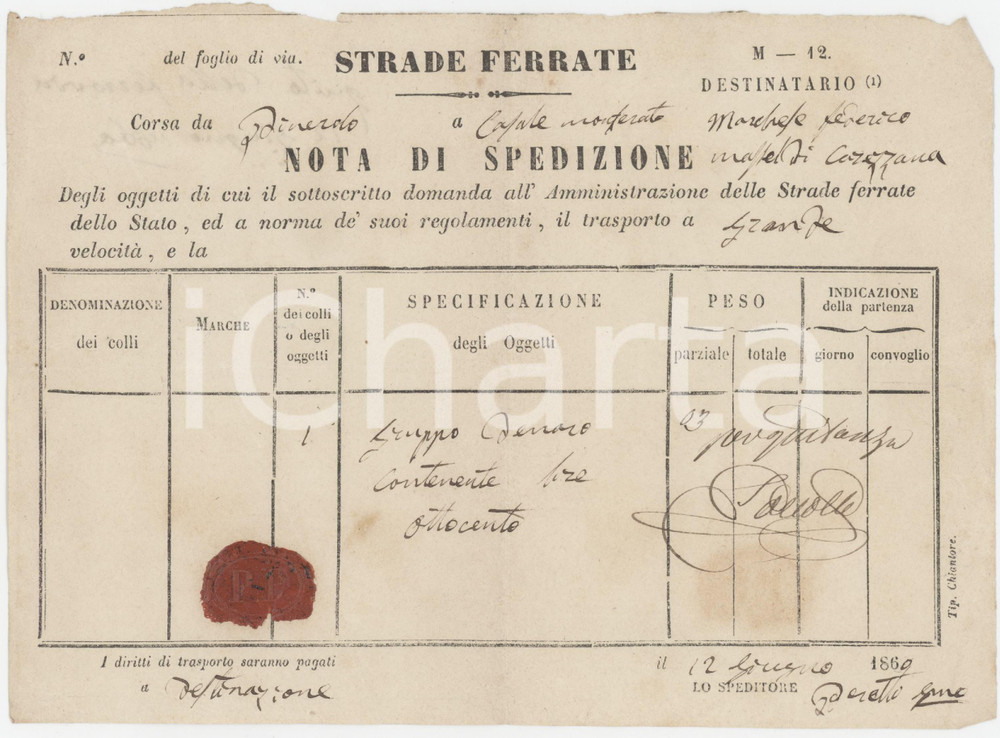 N.º del foglio di via. STRADE FERRATE M — 12.
DESTINATARIO (1)
Corsa da Pinerolo a Casale monferrato Marchese federico
NOTA DI SPEDIZIONE di
Degli oggetti di cui il sottoscritto domanda all' Amministrazione delle Strade ferrate
dello Stato, ed a norma de' suoi regolamenti, il trasporto a Grande
velocità, e la
DENOMINAZIONE
dei colli
MARCHE
N.º
dei colli
o degli
oggetti
SPECIFICAZIONE
degli Oggetti
PESO
parziale totale
INDICAZIONE
della partenza
giorno convoglio
iCharta
1 Gruppo Denaro
contenente lire
ottocento
per quitanza
Tip. Chiantore.
I diritti di trasporto saranno pagati
a Destinazione
il 12 Giugno 1860
LO SPEDITORE